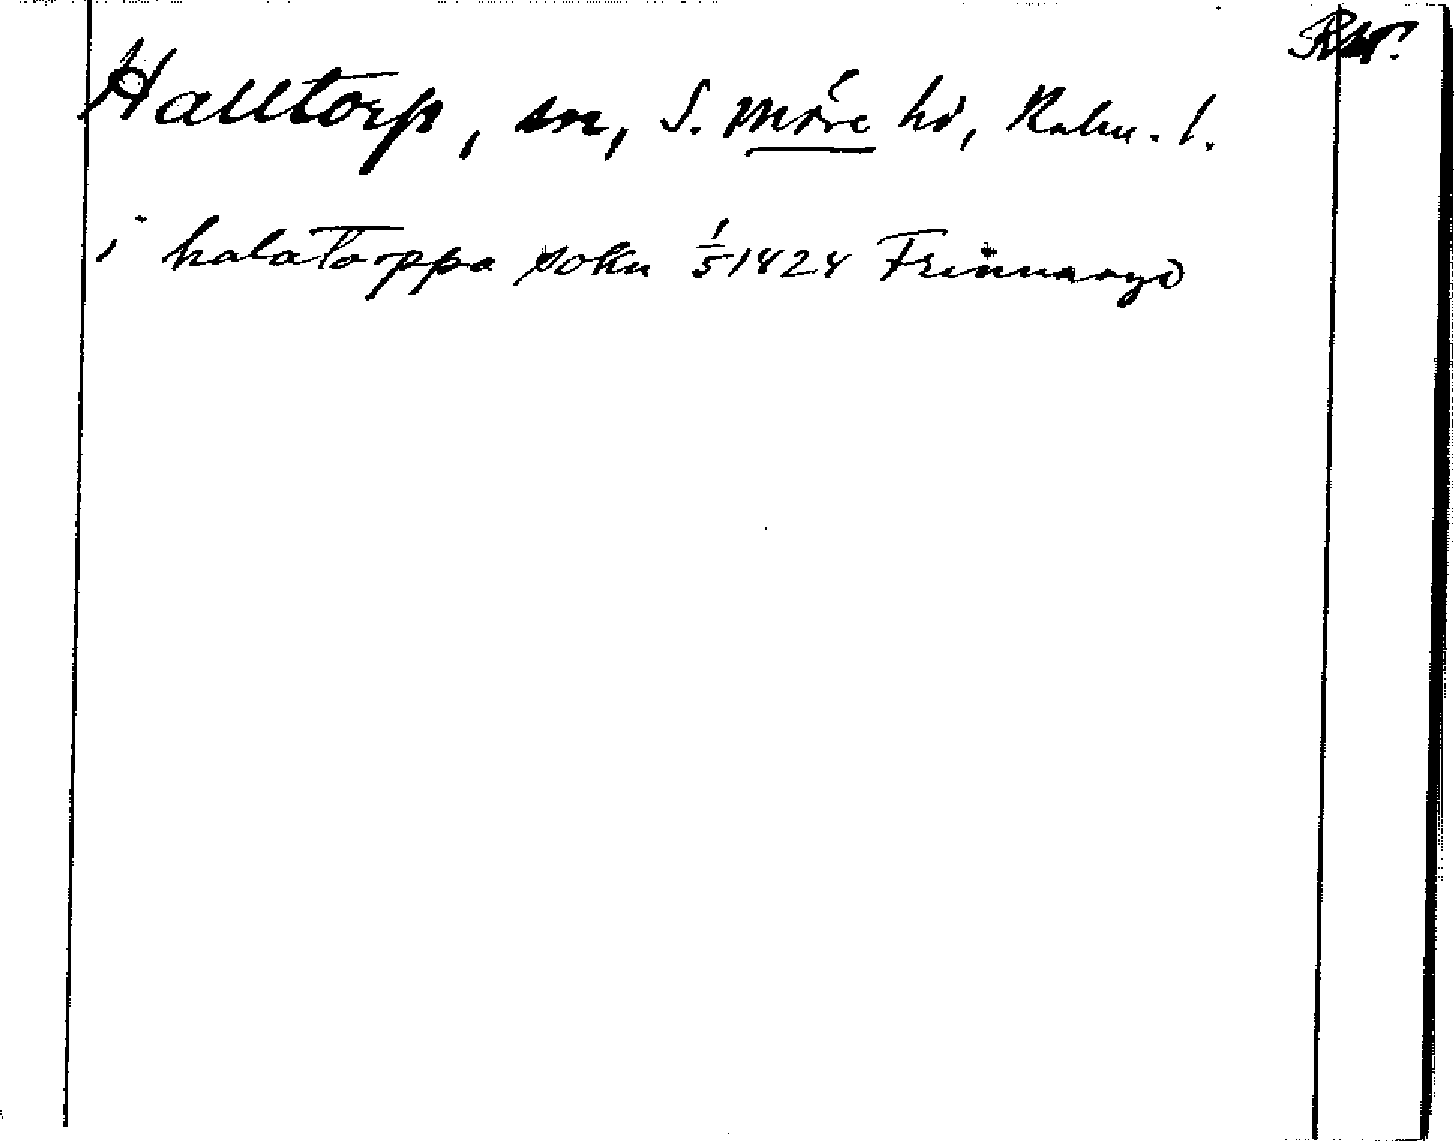 Halltorp, sn, S. Möre hd, Kalm. l.
i halatorppa sokn 1/5 1424